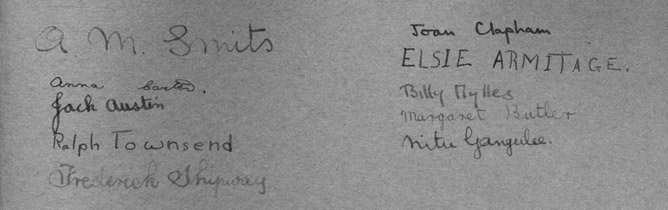 A M. Smits
Anna
Jack Austin
Ralph Townsend
Frederick Shipway
Joan Clapham
ELSIE ARMITAGE.
Billy
Margaret Butler
Nitu Gangulee.